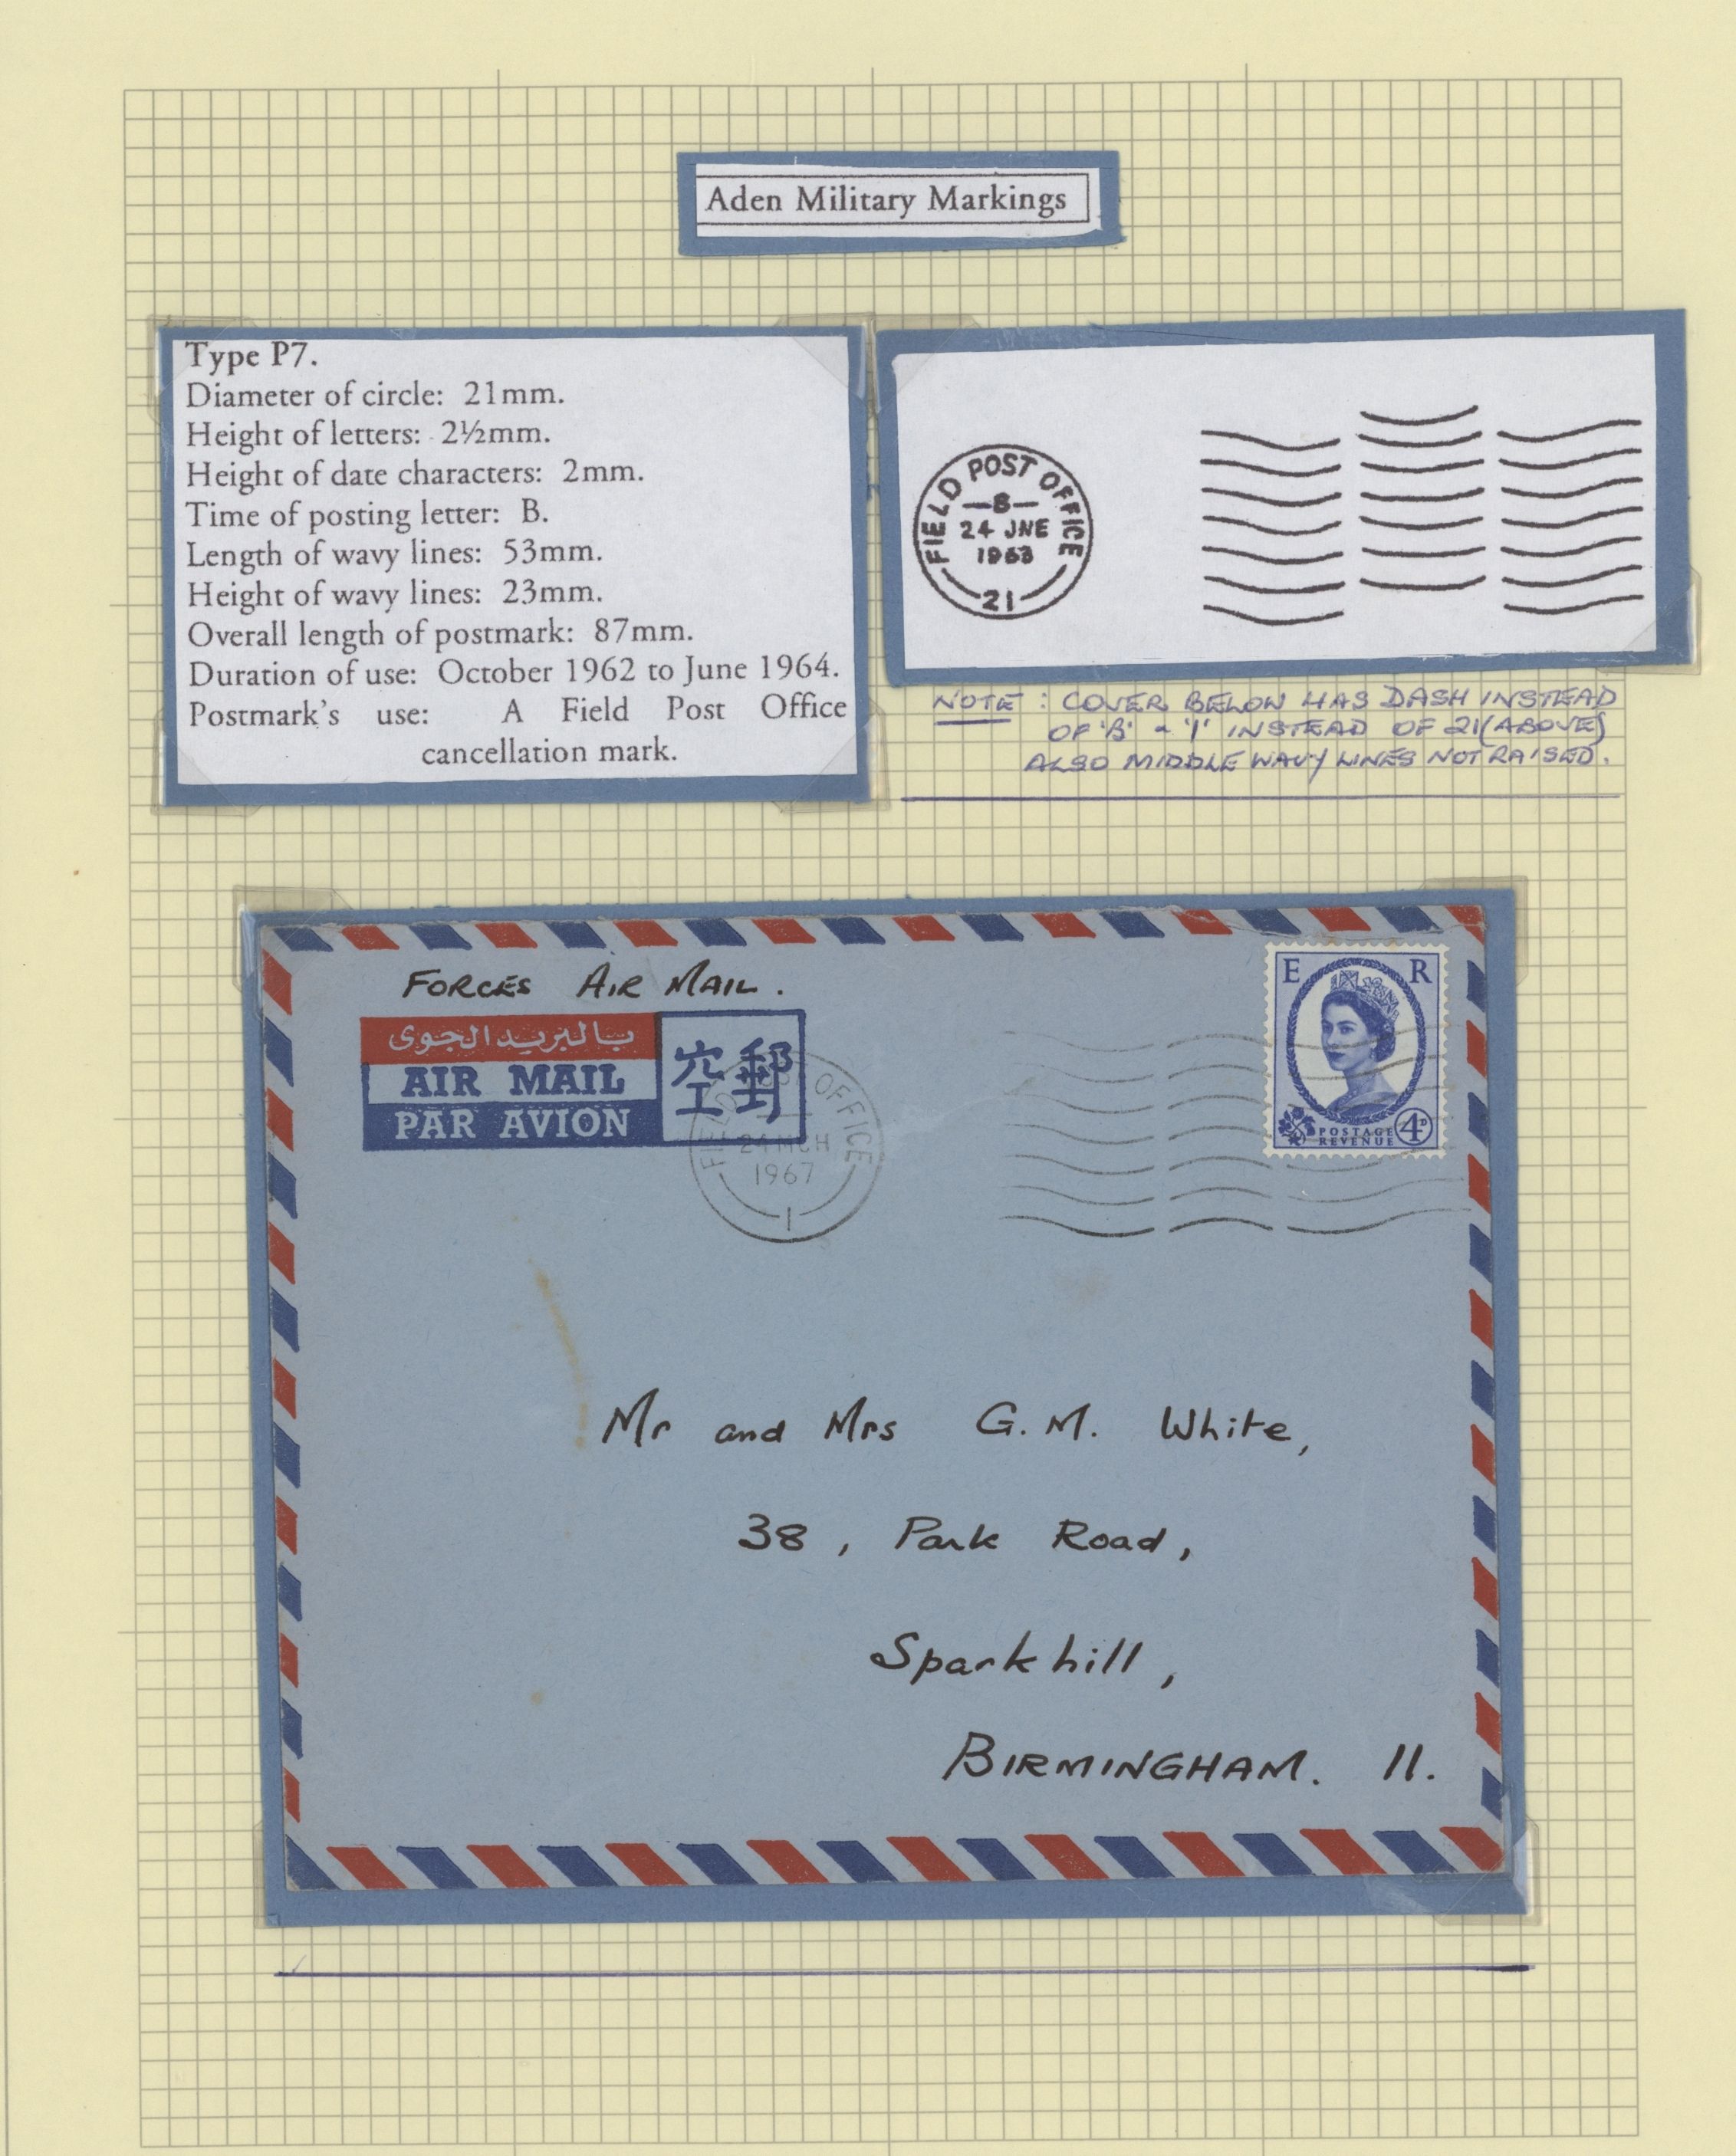 Aden Military Markings
Type P7.
Diameter of circle: 21mm.
Height of letters: 2½mm.
Height of date characters: 2mm.
Time of posting letter: B.
Length of wavy lines: 53mm.
Height of wavy lines: 23mm.
Overall length of postmark: 87mm.
Duration of use: October 1962 to June 1964.
Postmark's use: A Field Post Office
cancellation mark.
FIELD POST OFFICE
—B—
24 JNE
1963
21
NOTE : COVER BELOW HAS DASH INSTEAD
OF 'B' & '1' INSTEAD OF 21 (ABOVE)
ALSO MIDDLE WAVY LINES NOT RAISED.
FORCES AIR MAIL.
بالبريد الجوى
AIR MAIL
PAR AVION
空郵
FIELD POST OFFICE
24 MCH
1967
1
E R
POSTAGE
REVENUE
4D
Mr and Mrs G.M. White,
38, Park Road,
Sparkhill,
BIRMINGHAM. 11.